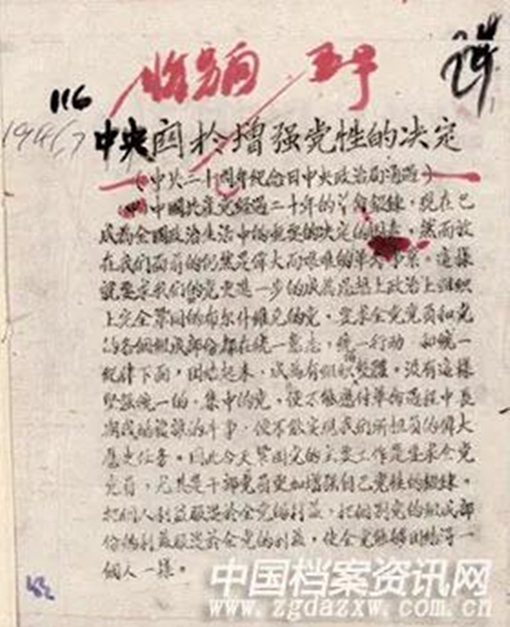 116
194
中央囯於增强党性的决定
(中共二十周年纪念日中央政治局通過)
中國共産党經過二十年的革命鍛鍊，現在已
成為全國政治生活中的重要的决定的因素，然而放
在我们面前的仍然是偉大而艰难的革命事業。這樣
就要求我们的党更進一步的成為思想上政治上組織
上完全鞏固的布尔什維克的党，要求全党党員和党
的各個組成部份都在統一意志，統一行動 和統一
紀律下面，团结起来，成為有組織的整體。没有這樣
坚强統一的，集中的党，便不能應付革命過程中長
期残酷複雜的斗争，便不能实現我们所担負的偉大
歷史任务。因此今天鞏固党的主要工作是要求全党
党員，尤其是干部党員更加增强自己党性的鍛鍊，
把個人利益服從於全党的利益，把個别党的組成部
份的利益服從於全党的利益，使全党能够团结得一
個人一樣。
中国档案资讯网
www.zgdazxw.com.cn